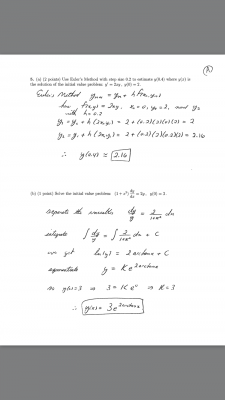 5. (a) (2 points) Use Euler's Method with step size 0.2 to estimate y(0.4) where y(x) is
the solution of the initial value problem y' = 2xy, y(0) = 2.
Euler's Method yn+1 = yn + h F(xn, yn)
F(x,y) = 2xy, x0 = 0, y0 = 2, and
with h = 0.2
y1 = y0 + h (2x0y0) = 2 + (0.2)(2)(0)(2) = 2
y2 = y1 + h (2x1y1) = 2 + (0.2)(2)(0.2)(2) = 2.16
∴ y(0.4) ≃ 2.16
(b) (1 point) Solve the initial value problem (1 + x²) dy/dx = 2y, y(0) = 3.
separate the variables dy/y = 2/(1+x²) dx
integrate ∫ dy/y = ∫ 2/(1+x²) dx + C
we get ln|y| = 2 arctan x + C
exponentiate y = K e^(2 arctan x)
y(0) = 3 ⇒ 3 = K e⁰ ⇒ K = 3
∴ y(x) = 3 e^(2 arctan x)